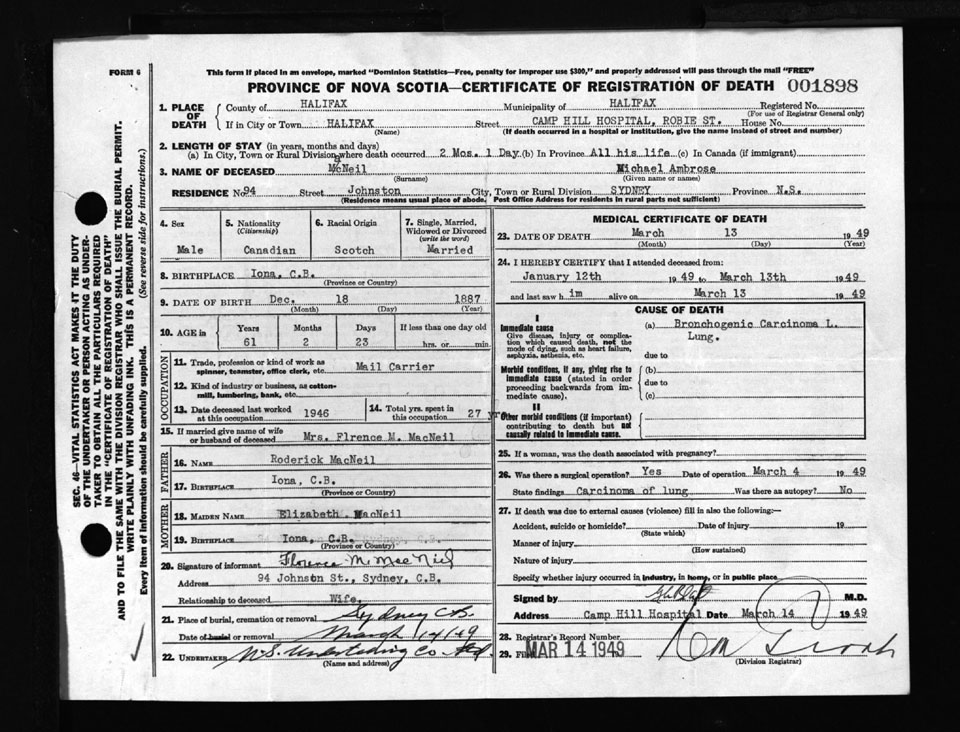 FORM 6
This form if placed in an envelope, marked "Dominion Statistics—Free, penalty for improper use $300," and properly addressed will pass through the mail "FREE"
PROVINCE OF NOVA SCOTIA—CERTIFICATE OF REGISTRATION OF DEATH 001898
1. PLACE OF DEATH
County of HALIFAX Municipality of HALIFAX Registered No.
(For use of Registrar General only)
If in City or Town HALIFAX Street CAMP HILL HOSPITAL, ROBIE ST. House No.
(Name) (If death occurred in a hospital or institution, give the name instead of street and number)
2. LENGTH OF STAY (in years, months and days)
(a) In City, Town or Rural Division where death occurred 2 Mos. 1 Day (b) In Province All his life (c) In Canada (if immigrant)
3. NAME OF DECEASED McNeil Michael Ambrose
(Surname) (Given name or names)
RESIDENCE No. 94 Street Johnston City, Town or Rural Division SYDNEY Province N.S.
(Residence means usual place of abode. Post Office Address for residents in rural parts not sufficient)
4. Sex Male
5. Nationality (Citizenship) Canadian
6. Racial Origin Scotch
7. Single, Married, Widowed or Divorced (write the word) Married
8. BIRTHPLACE Iona, C.B.
(Province or Country)
9. DATE OF BIRTH Dec. 18 1887
(Month) (Day) (Year)
10. AGE in Years Months Days If less than one day old
61 2 23 hrs. or min.
OCCUPATION
11. Trade, profession or kind of work as spinner, teamster, office clerk, etc. Mail Carrier
12. Kind of industry or business, as cotton-mill, lumbering, bank, etc.
13. Date deceased last worked at this occupation 1946
14. Total yrs. spent in this occupation 27 yrs
15. If married give name of wife or husband of deceased Mrs. Flrence M. MacNeil
FATHER
16. NAME Roderick MacNeil
17. BIRTHPLACE Iona, C.B.
(Province or Country)
MOTHER
18. MAIDEN NAME Elizabeth MacNeil
19. BIRTHPLACE Iona, C.B.
(Province or Country)
20. Signature of informant Florence M. MacNeil
Address 94 Johnston St., Sydney, C.B.
Relationship to deceased Wife
21. Place of burial, cremation or removal Sydney C.B.
Date of burial or removal March 14/49
22. UNDERTAKER N.S. Undertaking Co Ltd.
(Name and address)
MEDICAL CERTIFICATE OF DEATH
23. DATE OF DEATH March 13 1949
(Month) (Day) (Year)
24. I HEREBY CERTIFY that I attended deceased from:
January 12th 1949 to March 13th 1949
and last saw him alive on March 13 1949
CAUSE OF DEATH
I
Immediate cause
Give disease, injury or complication which caused death, not the mode of dying, such as heart failure, asphyxia, asthenia, etc.
(a) Bronchogenic Carcinoma L.
Lung.
due to
Morbid conditions, if any, giving rise to immediate cause (stated in order proceeding backwards from immediate cause).
(b)
due to
(c)
II
Other morbid conditions (if important) contributing to death but not causally related to immediate cause.
25. If a woman, was the death associated with pregnancy?
26. Was there a surgical operation? Yes Date of operation March 4 1949
State findings Carcinoma of lung Was there an autopsy? No
27. If death was due to external causes (violence) fill in also the following:—
Accident, suicide or homicide? Date of injury 19
(State which)
Manner of injury
(How sustained)
Nature of injury
Specify whether injury occurred in industry, in home, or in public place
Signed by M.D.
Address Camp Hill Hospital Date March 14 1949
28. Registrar's Record Number
29. MAR 14 1949
(Division Registrar)
SEC. 46—VITAL STATISTICS ACT MAKES IT THE DUTY
OF THE UNDERTAKER OR PERSON ACTING AS UNDER-
TAKER TO OBTAIN ALL THE PARTICULARS REQUIRED
IN THE "CERTIFICATE OF REGISTRATION OF DEATH"
AND TO FILE THE SAME WITH THE DIVISION REGISTRAR WHO SHALL ISSUE THE BURIAL PERMIT.
WRITE PLAINLY WITH UNFADING INK. THIS IS A PERMANENT RECORD.
Every item of information should be carefully supplied. (See reverse side for instructions.)